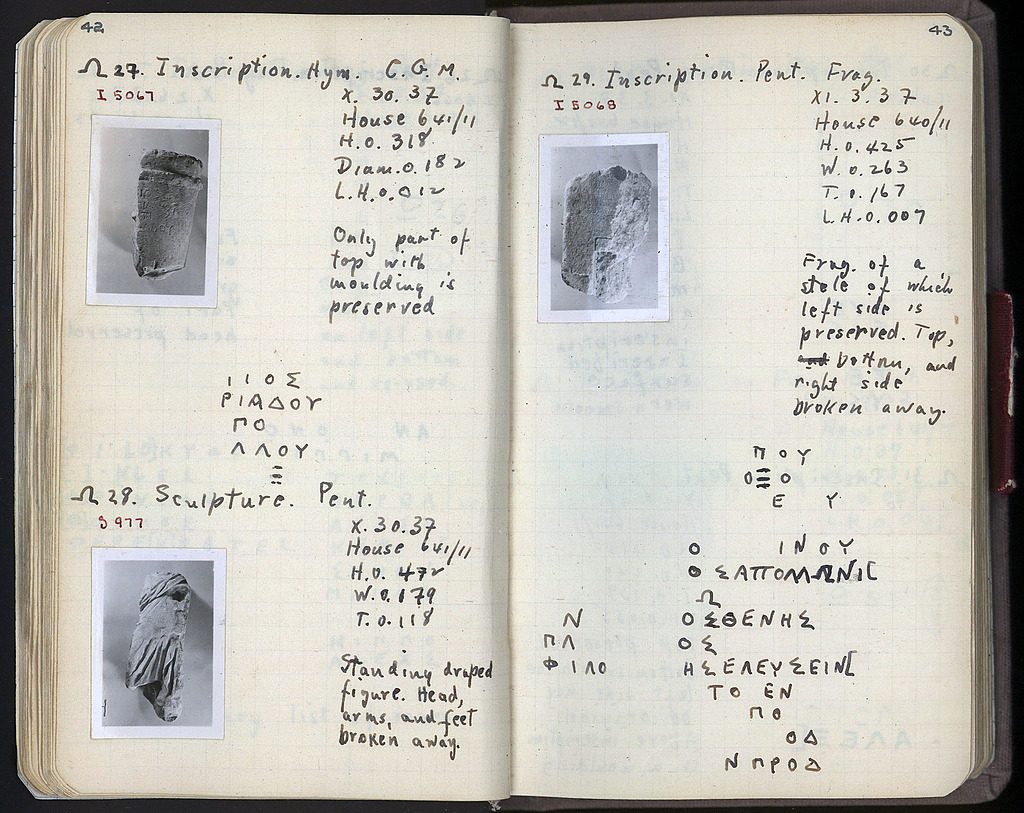 42
Ω 27. Inscription. Hym. C.G.M.
I 5067
X. 30. 37
House 641/11
H. 0. 318
Diam. 0. 182
L.H. 0. 012
Only part of
top with
moulding is
preserved
Ι Ι Ο Σ
ΡΙΑΔΟΥ
ΠΟ
ΛΛΟΥ
Ω 28. Sculpture. Pent.
S 977
X. 30. 37
House 641/11
H. 0. 472
W. 0. 179
T. 0. 118
Standing draped
figure. Head,
arms, and feet
broken away.
43
Ω 29. Inscription. Pent. Frag.
I 5068
XI. 3. 37
House 640/11
H. 0. 425
W. 0. 263
T. 0. 167
L.H. 0. 007
Frag. of a
stele of which
left side is
preserved. Top,
bottom, and
right side
broken away.
Π Ο Υ
Ο Ξ Ο
Ε Υ
Ο ΙΝΟΥ
Ο ΣΑΠΟΛΛΩΝΙ[
Ω
Ν ΟΣΘΕΝΗΣ
ΠΛ ΟΣ
ΦΙΛΟ ΗΣΕΛΕΥΣΕΙΝ[
ΤΟ ΕΝ
ΠΟ
ΟΔ
ΝΠΡΟΔ